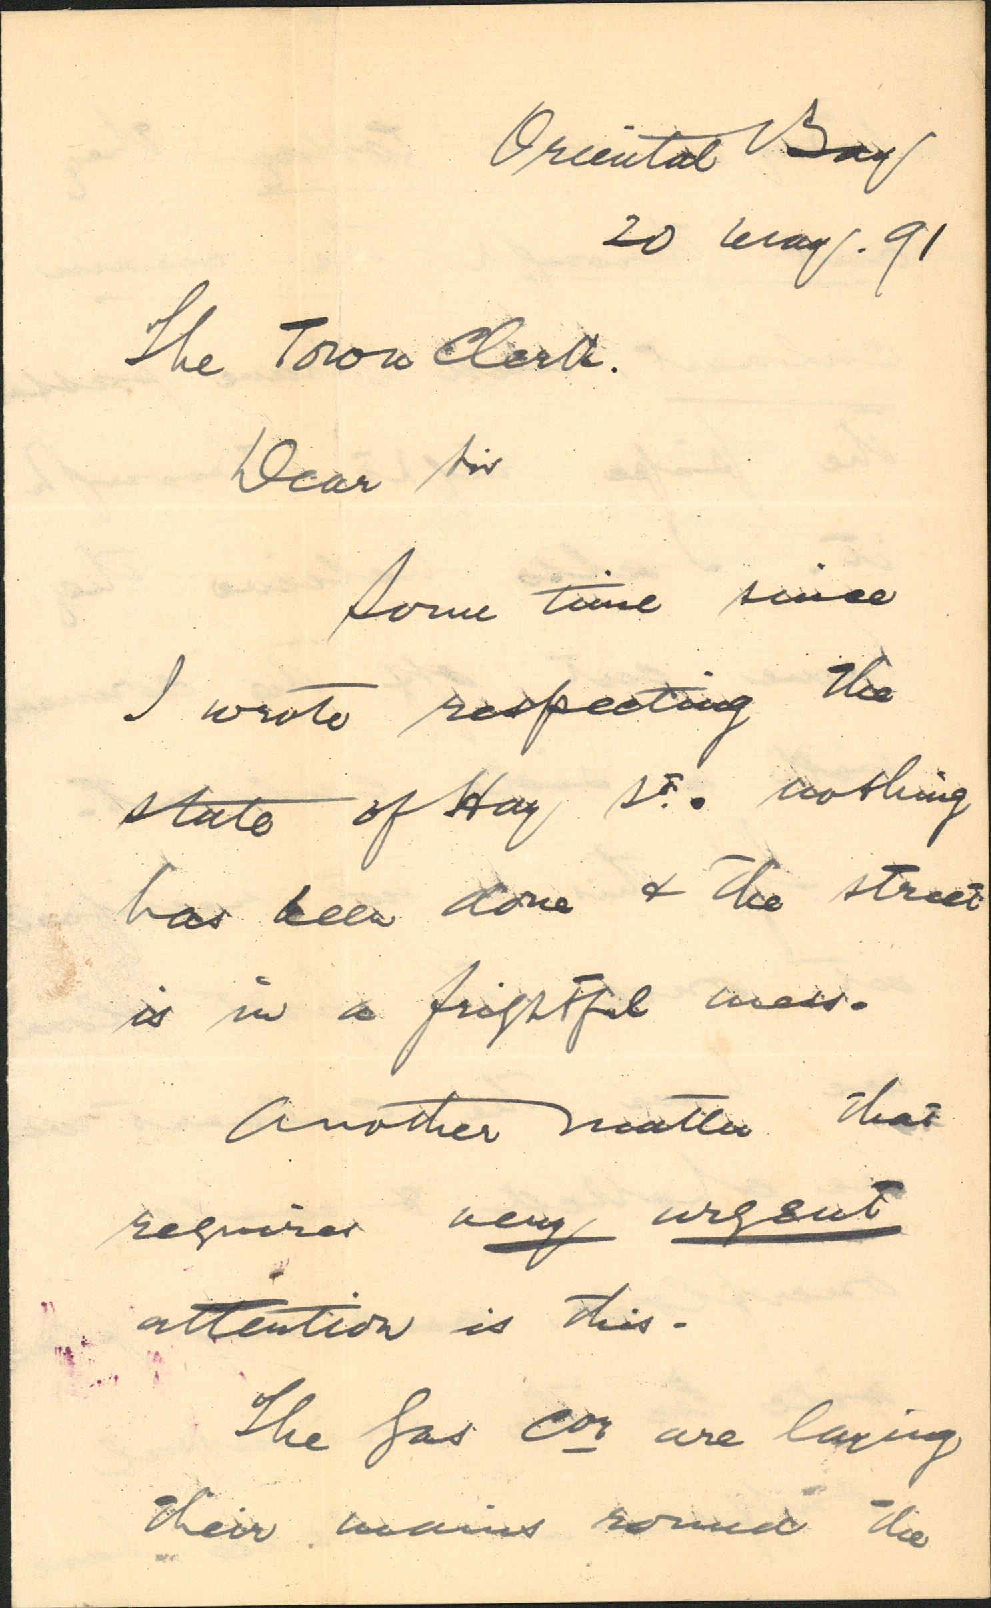 Oriental Bay
20 May. 91
The Town Clerk.
Dear Sir
Some time since
I wrote respecting the
state of Hay St. nothing
has been done & the street
is in a frightful mess.
Another matter that
requires very urgent
attention is this.
The Gas Coy are laying
their mains round the